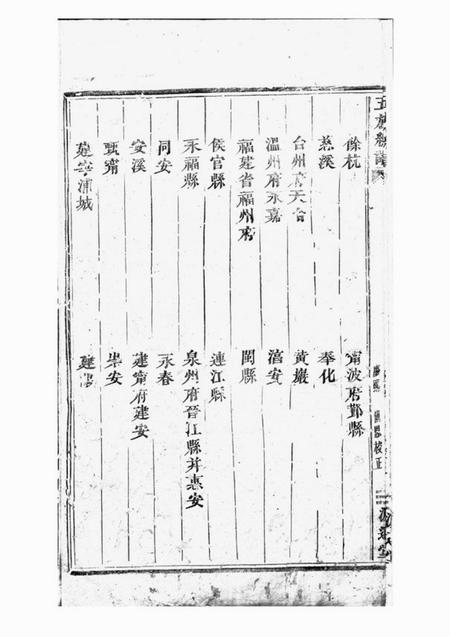 餘杭 甯波府鄞縣
慈溪 奉化
台州府天台 黃巖
溫州府永嘉 安
福建省福州府 閩縣
侯官縣 連江縣
永福縣 泉州府晉江縣并惠安
同安 永春
安溪 建甯府建安
甌甯 崇安
建寧浦城 建
校正